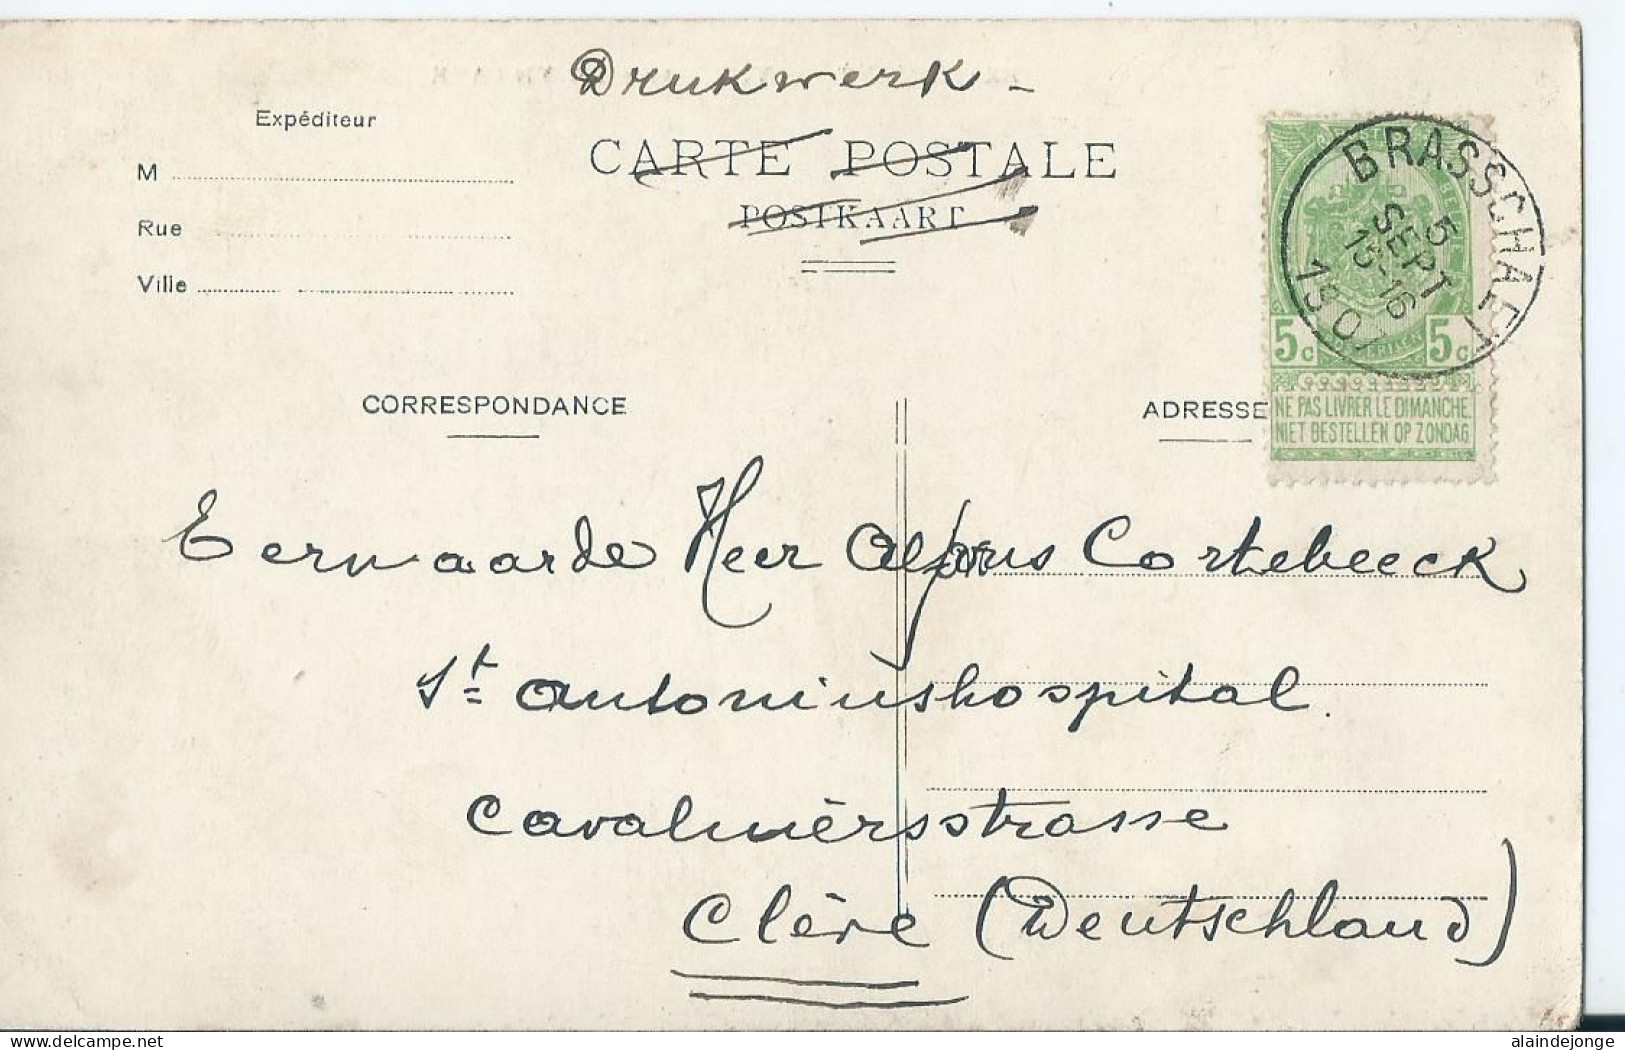 Drukwerk -
Expéditeur
CARTE POSTALE
M
POSTKAART
Rue
Ville
BRASSCHAET
5
SEPT
15-16
1907
5c 5c
NE PAS LIVRER LE DIMANCHE.
NIET BESTELLEN OP ZONDAG
CORRESPONDANCE
ADRESSE
Eerwaarde Heer Alfons Cortebeeck
St. Antoniushospital.
Cavalmèrsstrasse
Clève (Deutschland)
delcampe.net
alaindejonge